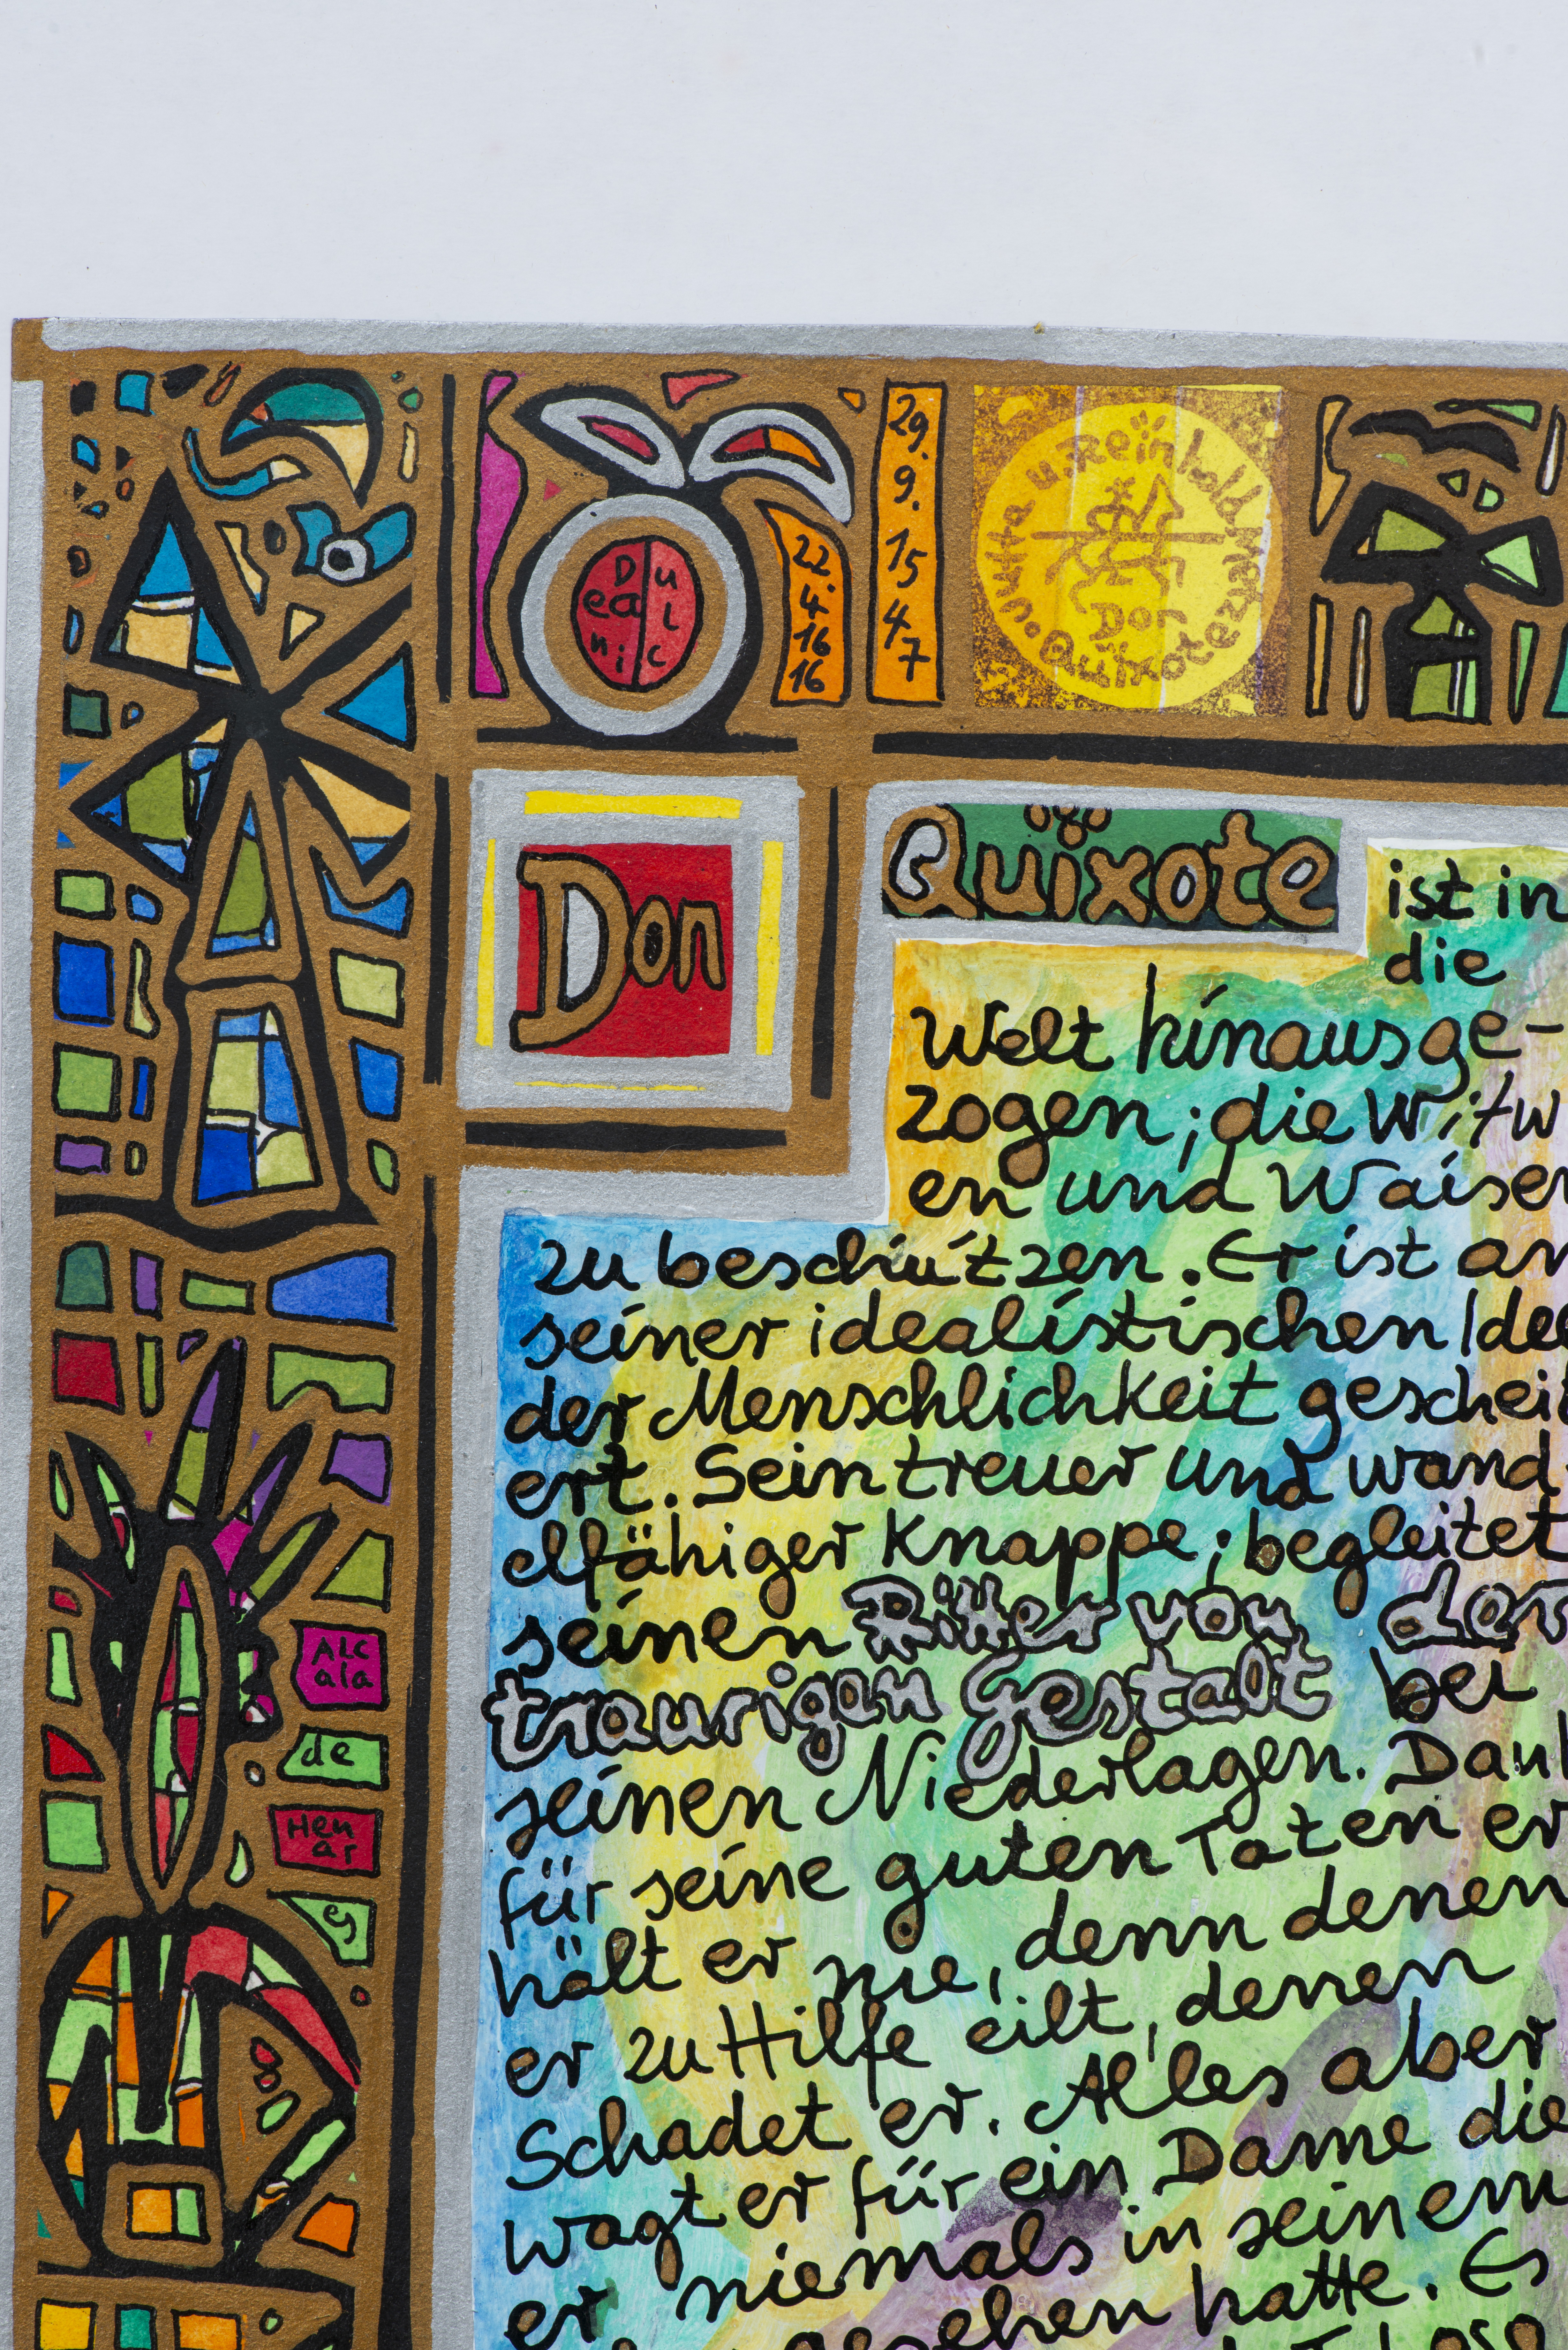 D u
ea l
ni c
22.
4.
16
16
29.
9.
15
4
7
Jutta u. Reinhold Metz
Don
Quixote
Don
Quixote
ist in
die
Welt hinausge-
zogen; die Witw
en und Waisen
zu beschützen. Er ist an
seiner idealistischen Idee
der Menschlichkeit gescheit
ert. Sein treuer und wand-
elfähiger Knappe; begleitet
seinen Ritter von der
traurigen Gestalt bei
seinen Niederlagen. Dank
für seine guten Taten er
hält er nie, denn denen
er zu Hilfe eilt, denen
Schadet er. Alles aber
wagt er für ein Dame die
er niemals in seinem
gesehen hatte. Es
ALC
ala
de
Hen
ar
es